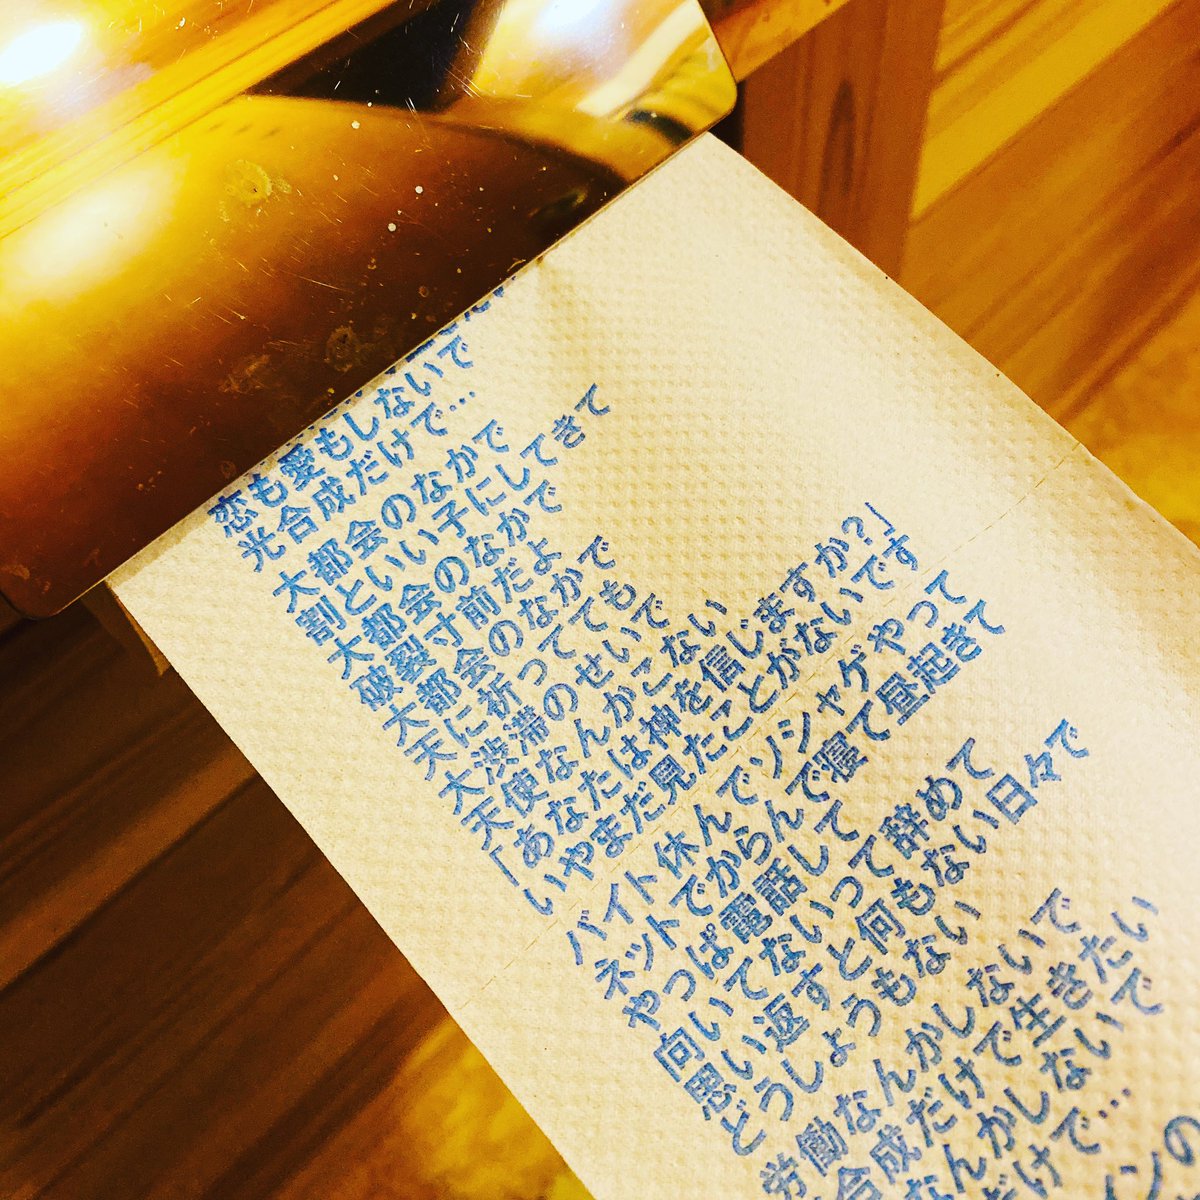 恋も愛もしないで
光合成だけで…
大都会のなかで
割といい子にしてきて
大都会のなかで
破裂寸前だよ
大都会のなかで
天に祈ってても
大渋滞のせいで
天使なんかこない
「あなたは神を信じますか?」
いやまだ見たことがないです
バイト休んでソシャゲやって
ネットでからんで寝て昼起きて
やっぱ電話して
向いてないって辞めて
思い返すと何もない日々で
どうしょうもない
労働なんかしないで
合成だけで生きたい
なんかしないで
だけで…